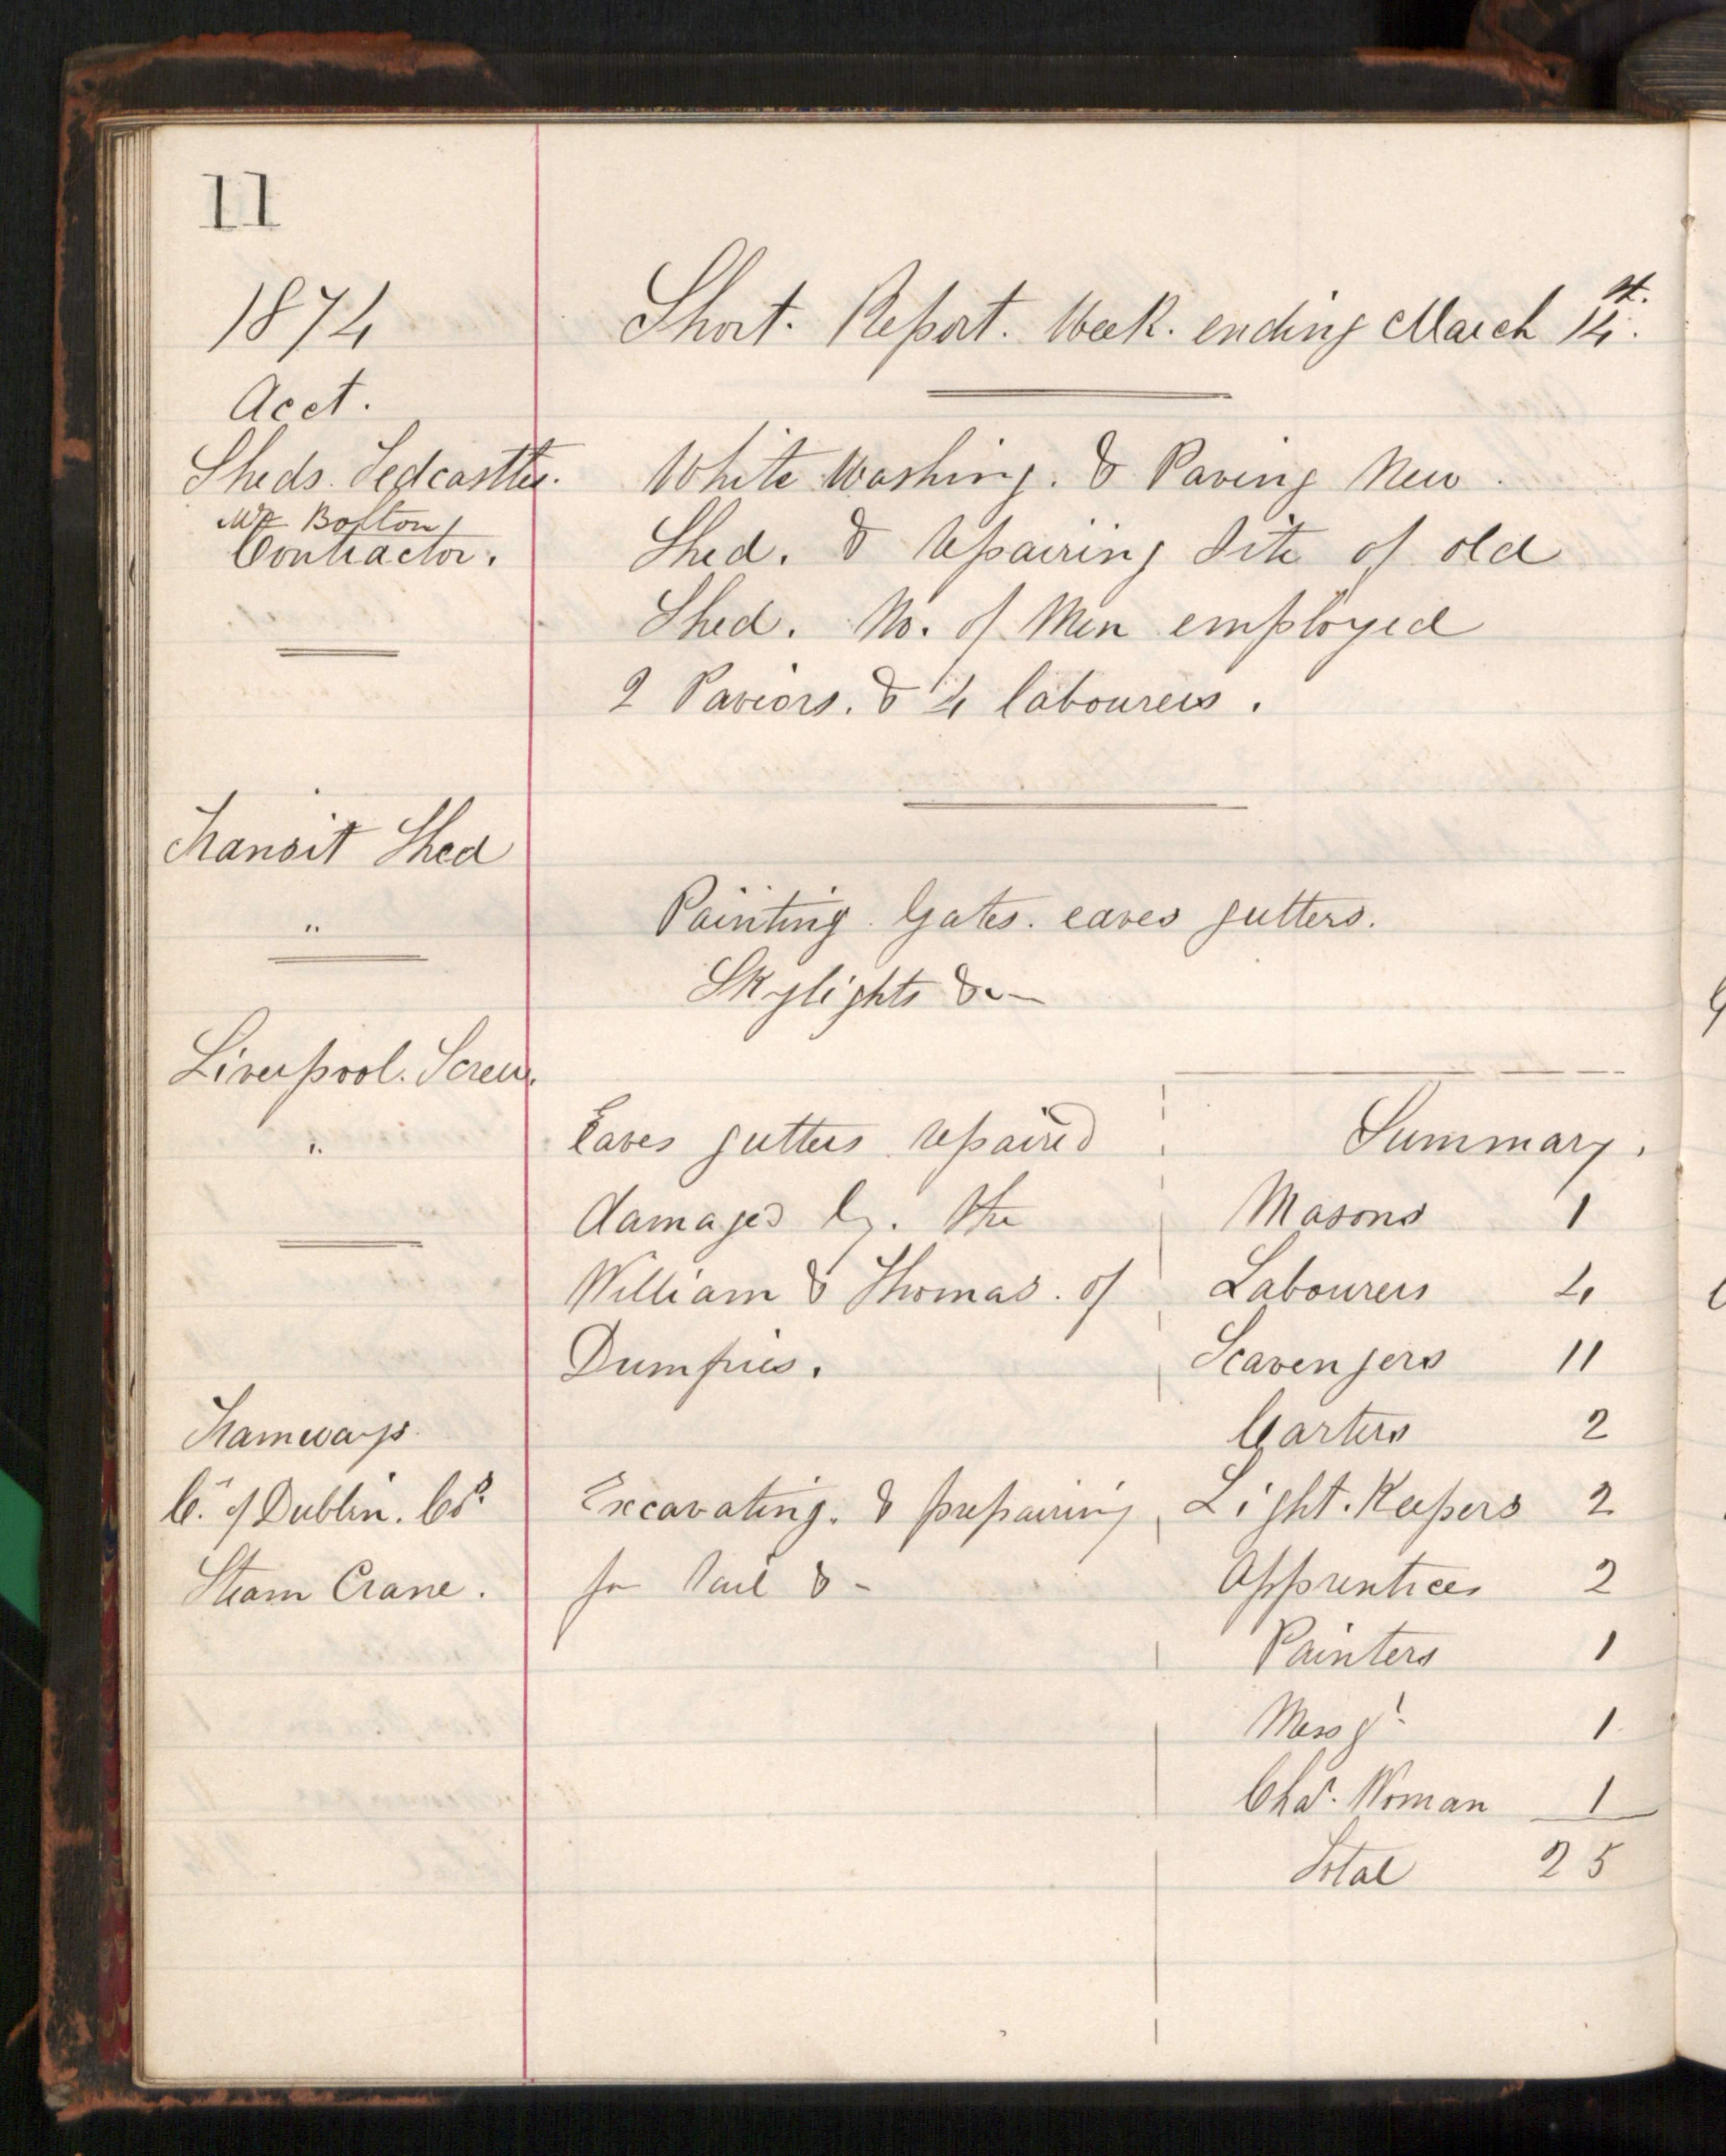 11
1874
Short. Report. Week. ending March 14th.
Acct.
Sheds. Tedcastle.
Mr Bolton
Contractor.
White Washing. & Paving New.
Shed. & repairing Site of old
Shed. No. of Men employed
2 Paviors. & 4 labourers.
Transit Shed
"
Painting. Gates. eaves gutters.
Skylights &c
Liverpool. Screw.
"
Eaves gutters repaired
damaged by. the
William & Thomas. of
Dumfries.
Tramways.
C. of Dublin. Co.
Steam Crane.
Excavating. & preparing
for rail &
Summary.
Masons 1
Labourers 4
Scavengers 11
Carters 2
Light. Keepers 2
Apprentices 2
Painters 1
Messgr. 1
Char. Woman 1
Total 25